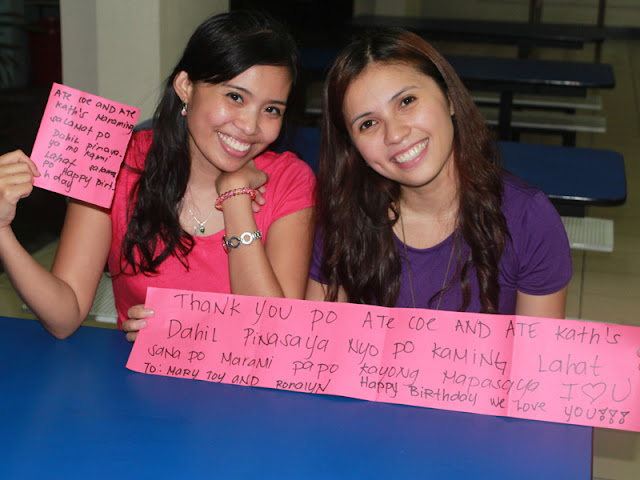 ATE COE AND ATE
Kath's Maraming
salamat po
Dahil pinasa-
ya mo kami
Lahat
po Happy Birt-
hday
Thank you po Ate coe AND ATE Kath's
Dahil Pinasaya Nyo po Kaming Lahat
sana po Marami papo kayong Mapasaya I ♡ U
To: Mary Joy and Ronalyn Happy Birthday we Love you!!!